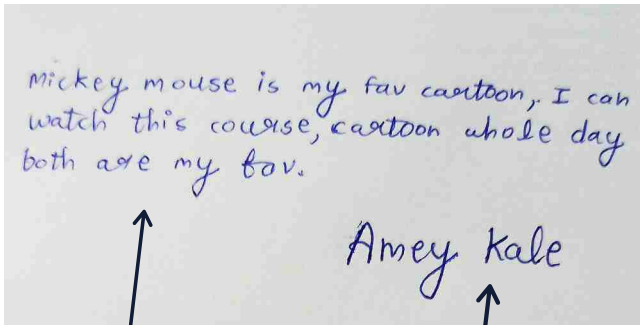 Mickey mouse is my fav cartoon, I can
watch this course, cartoon whole day
both are my fav.
Amey Kale